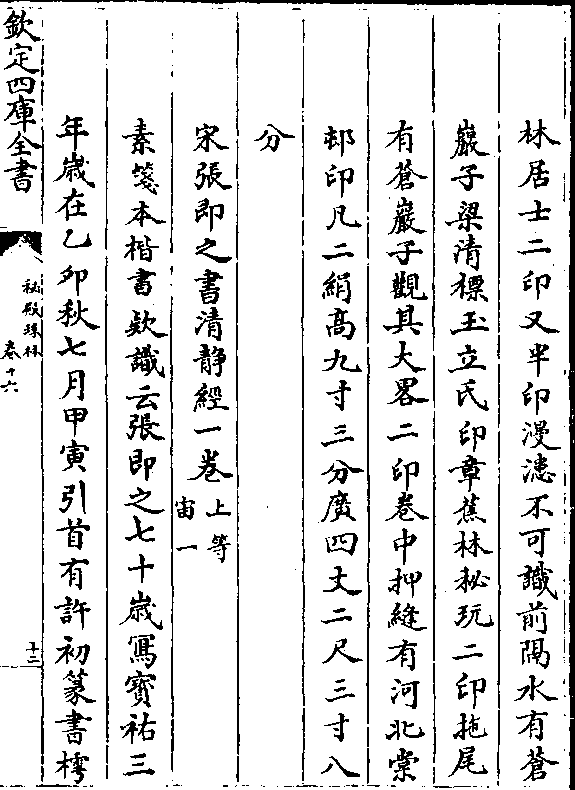 林居士二印又半印漫漶不可識前隔水有蒼
巖子梁清標玉立氏印章蕉林秘玩二印拖尾
有蒼巖子觀其大畧二印卷中押縫有河北棠
邨印凡二絹高九寸三分廣四丈二尺三寸八
分
宋張即之書清静經一卷 上等 宙一
素箋本楷書欵識云張即之七十歲寫寶祐三
年歲在乙卯秋七月甲寅引首有許初篆書樗
欽定四庫全書
秘殿珠林
卷十六
十二